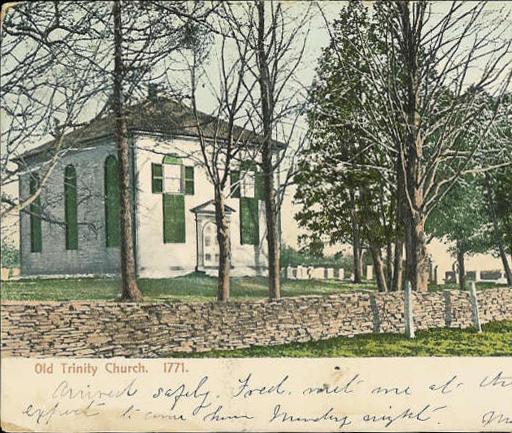 Old Trinity Church. 1771.
Arrived safely. Fred. met me at the
expect to come home Monday night.